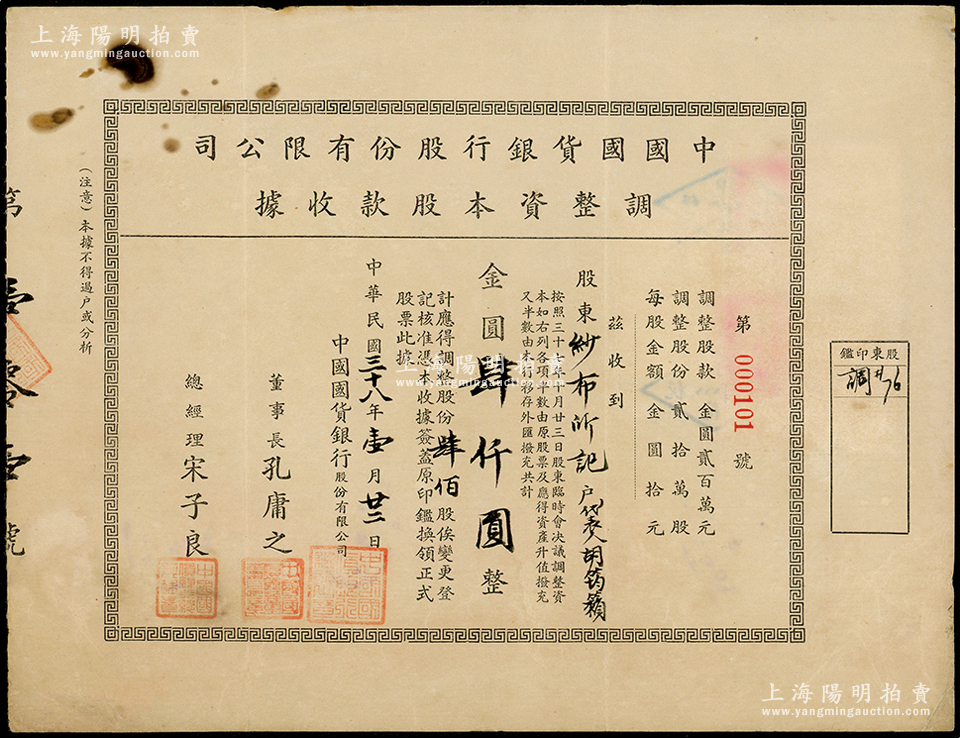 上海陽明拍賣
www.yangmingauction.com
中國國貨銀行股份有限公司
調整資本股款收據
第 000101 號
調整股款 金圓貳百萬元
調整股份 貳拾萬股
每股金額 金圓拾元
茲收到
股東紗布所記戶代表人胡筠籟
按照三十七年十月廿三日股東臨時會決議調整資
本如右列各項半數由原股票及應得資產升值撥充
又半數由本行移存外匯撥充共計
金圓肆仟圓整
計應得調整股份肆佰股俟變更登
記核准憑本收據簽蓋原印鑑換領正式
股票此據
中華民國三十八年壹月廿三日
中國國貨銀行股份有限公司
董事長孔庸之
總經理宋子良
(注意)本據不得過戶或分析
第壹零壹號
股東印鑑
調#76
上海陽明拍賣
www.yangmingauction.com
上海陽明拍賣
www.yangmingauction.com